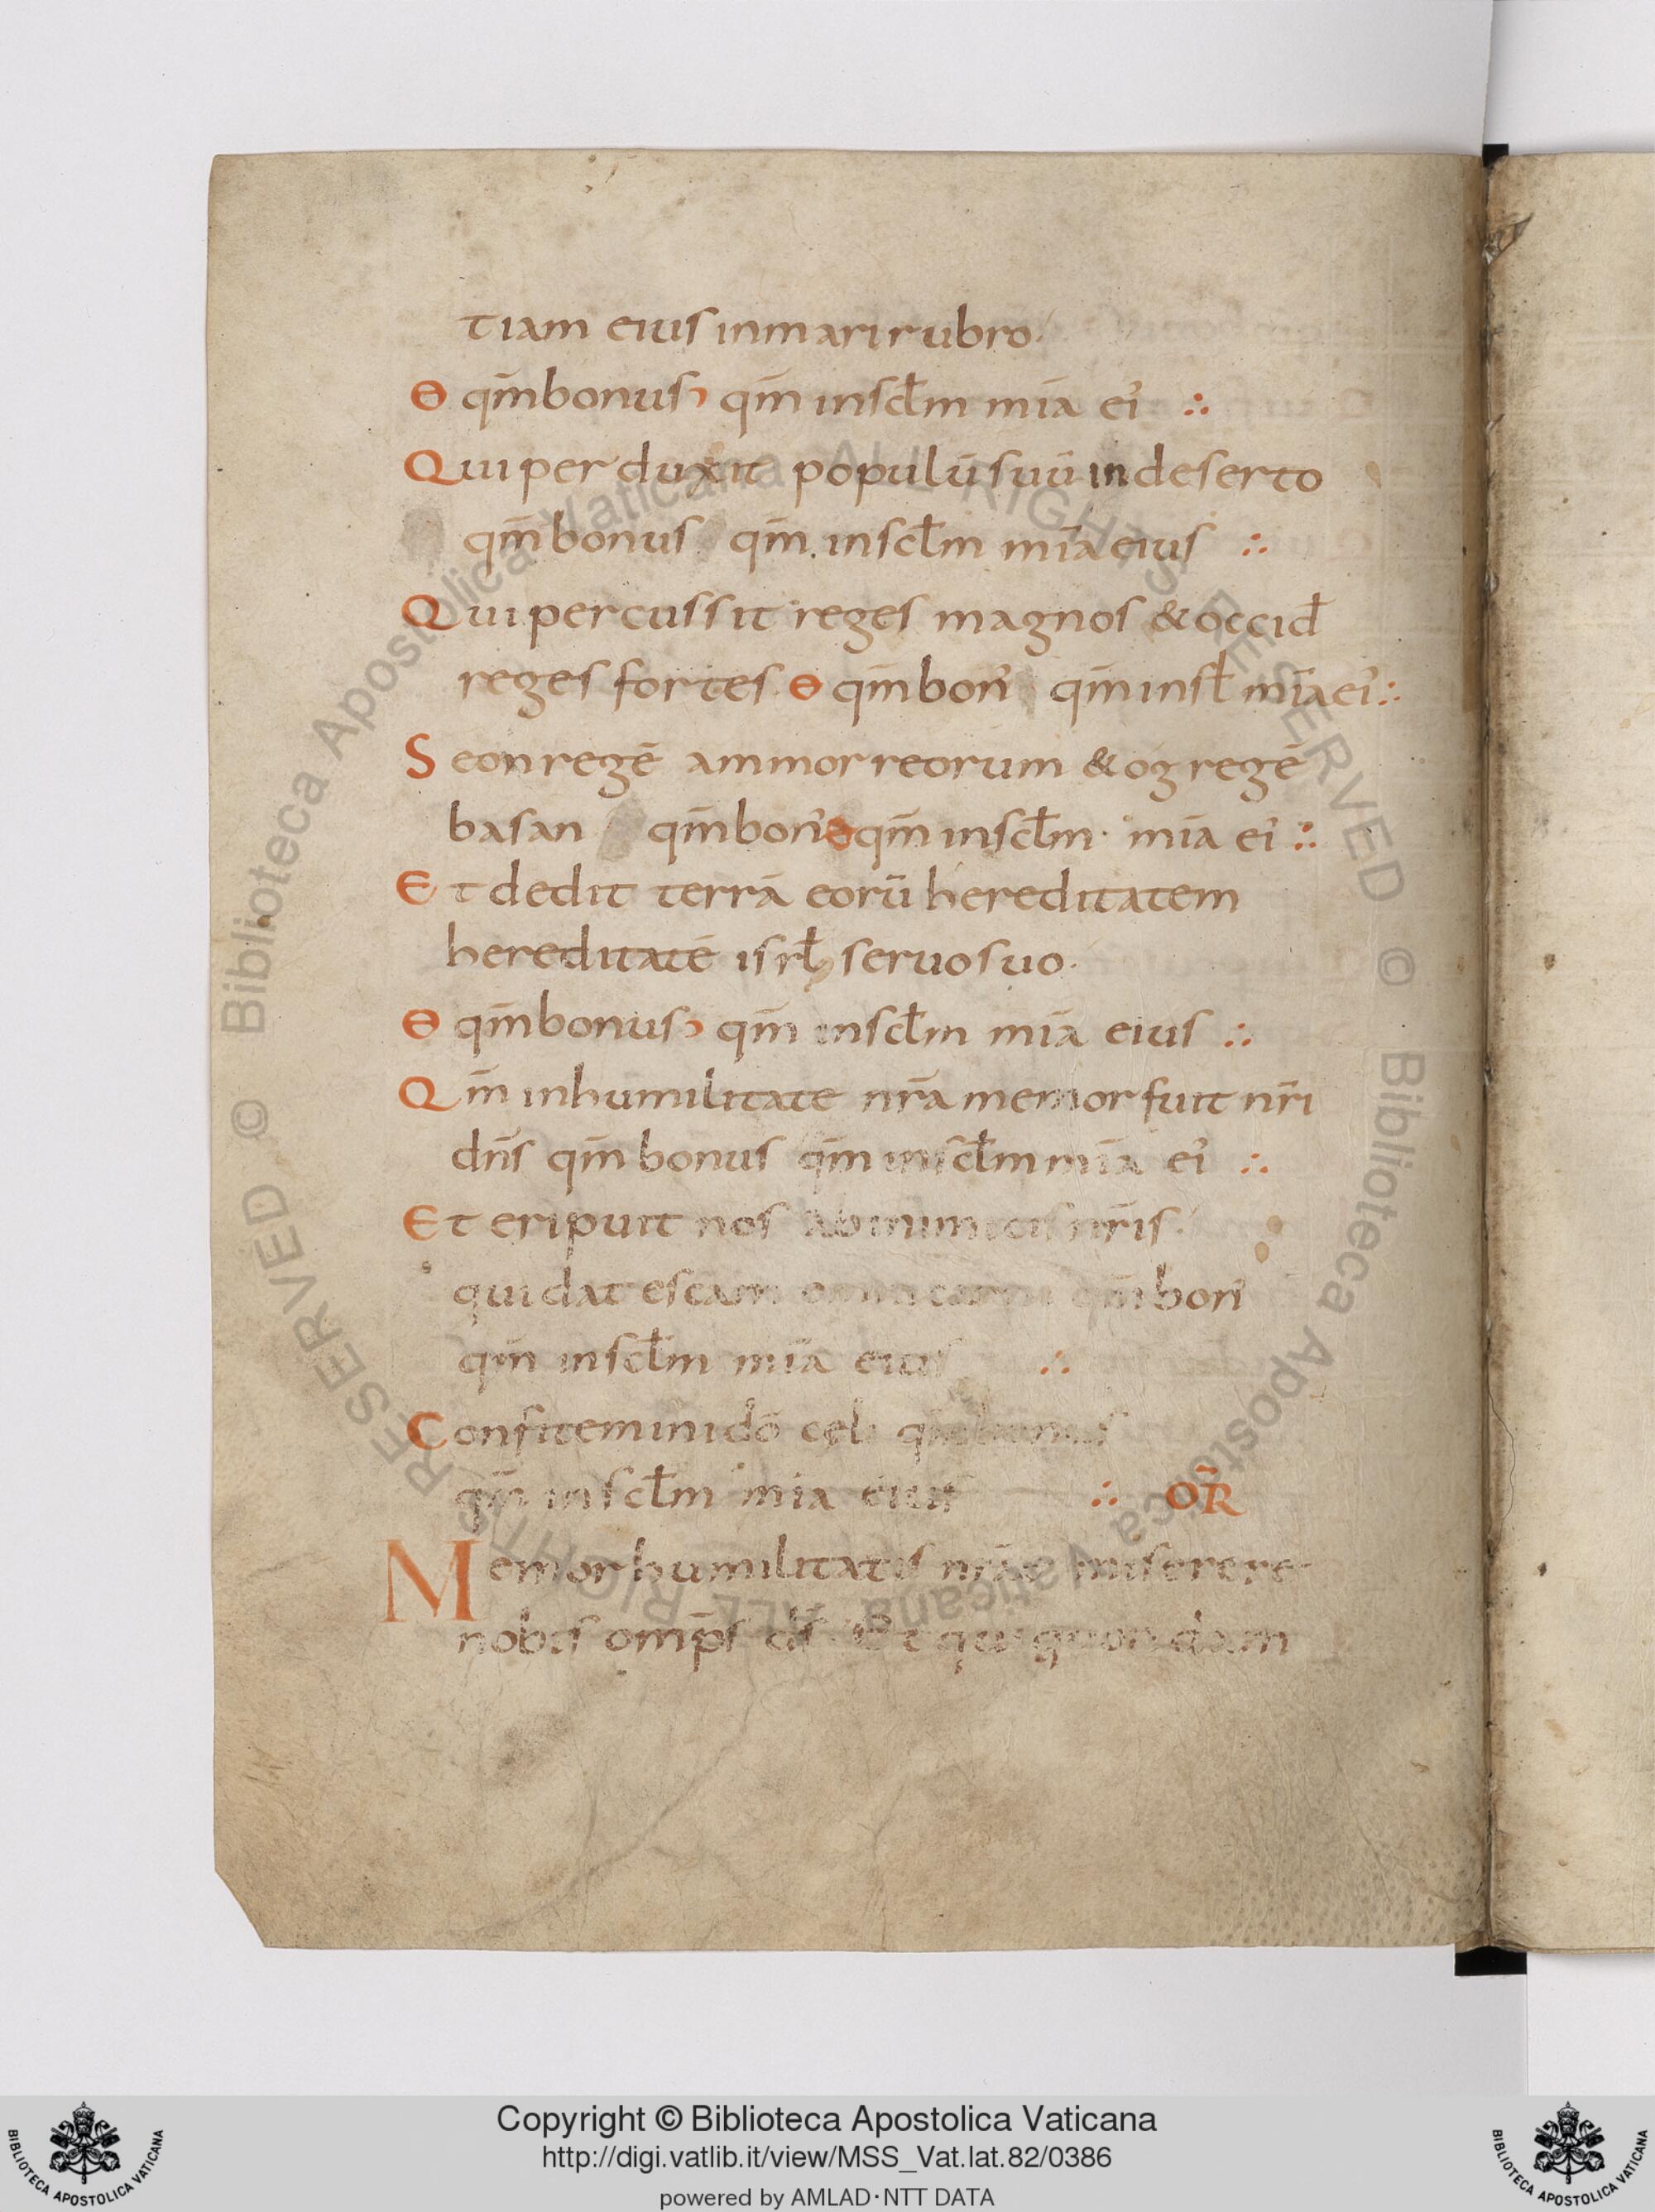 tiam eius in mari rubro.
Ɵ qm̄ bonus qm̄ in scl̄m mīa ei᾽ ∴
Qui per duxit populū suū in deserto
qm̄ bonus qm̄ in scl̄m mīa eius ∴
Qui percussit reges magnos & occid̄
reges fortes Ɵ qm̄ bon᾽ qm̄ in sl̄ mīa ei᾽ ∴
Seon regē ammorreorum & og regē
basan qm̄ bon᾽ Ɵ qm̄ in scl̄m mīa ei᾽ ∴
Et dedit terrā eorū hereditatem
hereditatē isrl̄ seruo suo.
Ɵ qm̄ bonus qm̄ in scl̄m mīa eius ∴
Qm̄ in humilitate nr̄a memor fuit nr̄i
dn̄s qm̄ bonus qm̄ in scl̄m mīa ei᾽ ∴
Et eripuit nos ab inimicis nr̄is.
qui dat escam omni carni qm̄ bon᾽
qm̄ in scl̄m mīa eius ∴
Confitemini dō cęli qm̄ bonus
qm̄ in scl̄m mia eius ∴ OR̄
Memor humilitatis nr̄ae miserere
nobis omp̄s ds̄ Et qui quondam
Copyright © Biblioteca Apostolica Vaticana
http://digi.vatlib.it/view/MSS_Vat.lat.82/0386
powered by AMLAD·NTT DATA
BIBLIOTECA APOSTOLICA VATICANA
BIBLIOTECA APOSTOLICA VATICANA
© Biblioteca Apostolica Vaticana ALL RIGHTS RESERVED
© Biblioteca Apostolica Vaticana ALL RIGHTS RESERVED